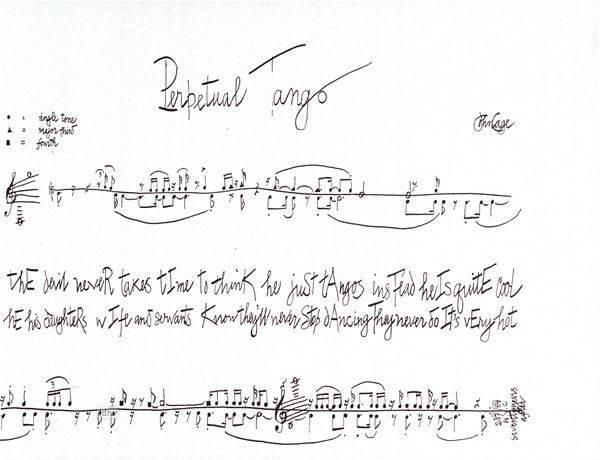 Perpetual Tango
● = single tone
▲ = major third
■ = fourth
John Cage
thE devil neveR takes tIme to thinK he juSt tAngos insTead he Is quitE cool
hE his daughteRs wIfe and servants Know they'll never Stop dAncing They never do It's vEry hot
3